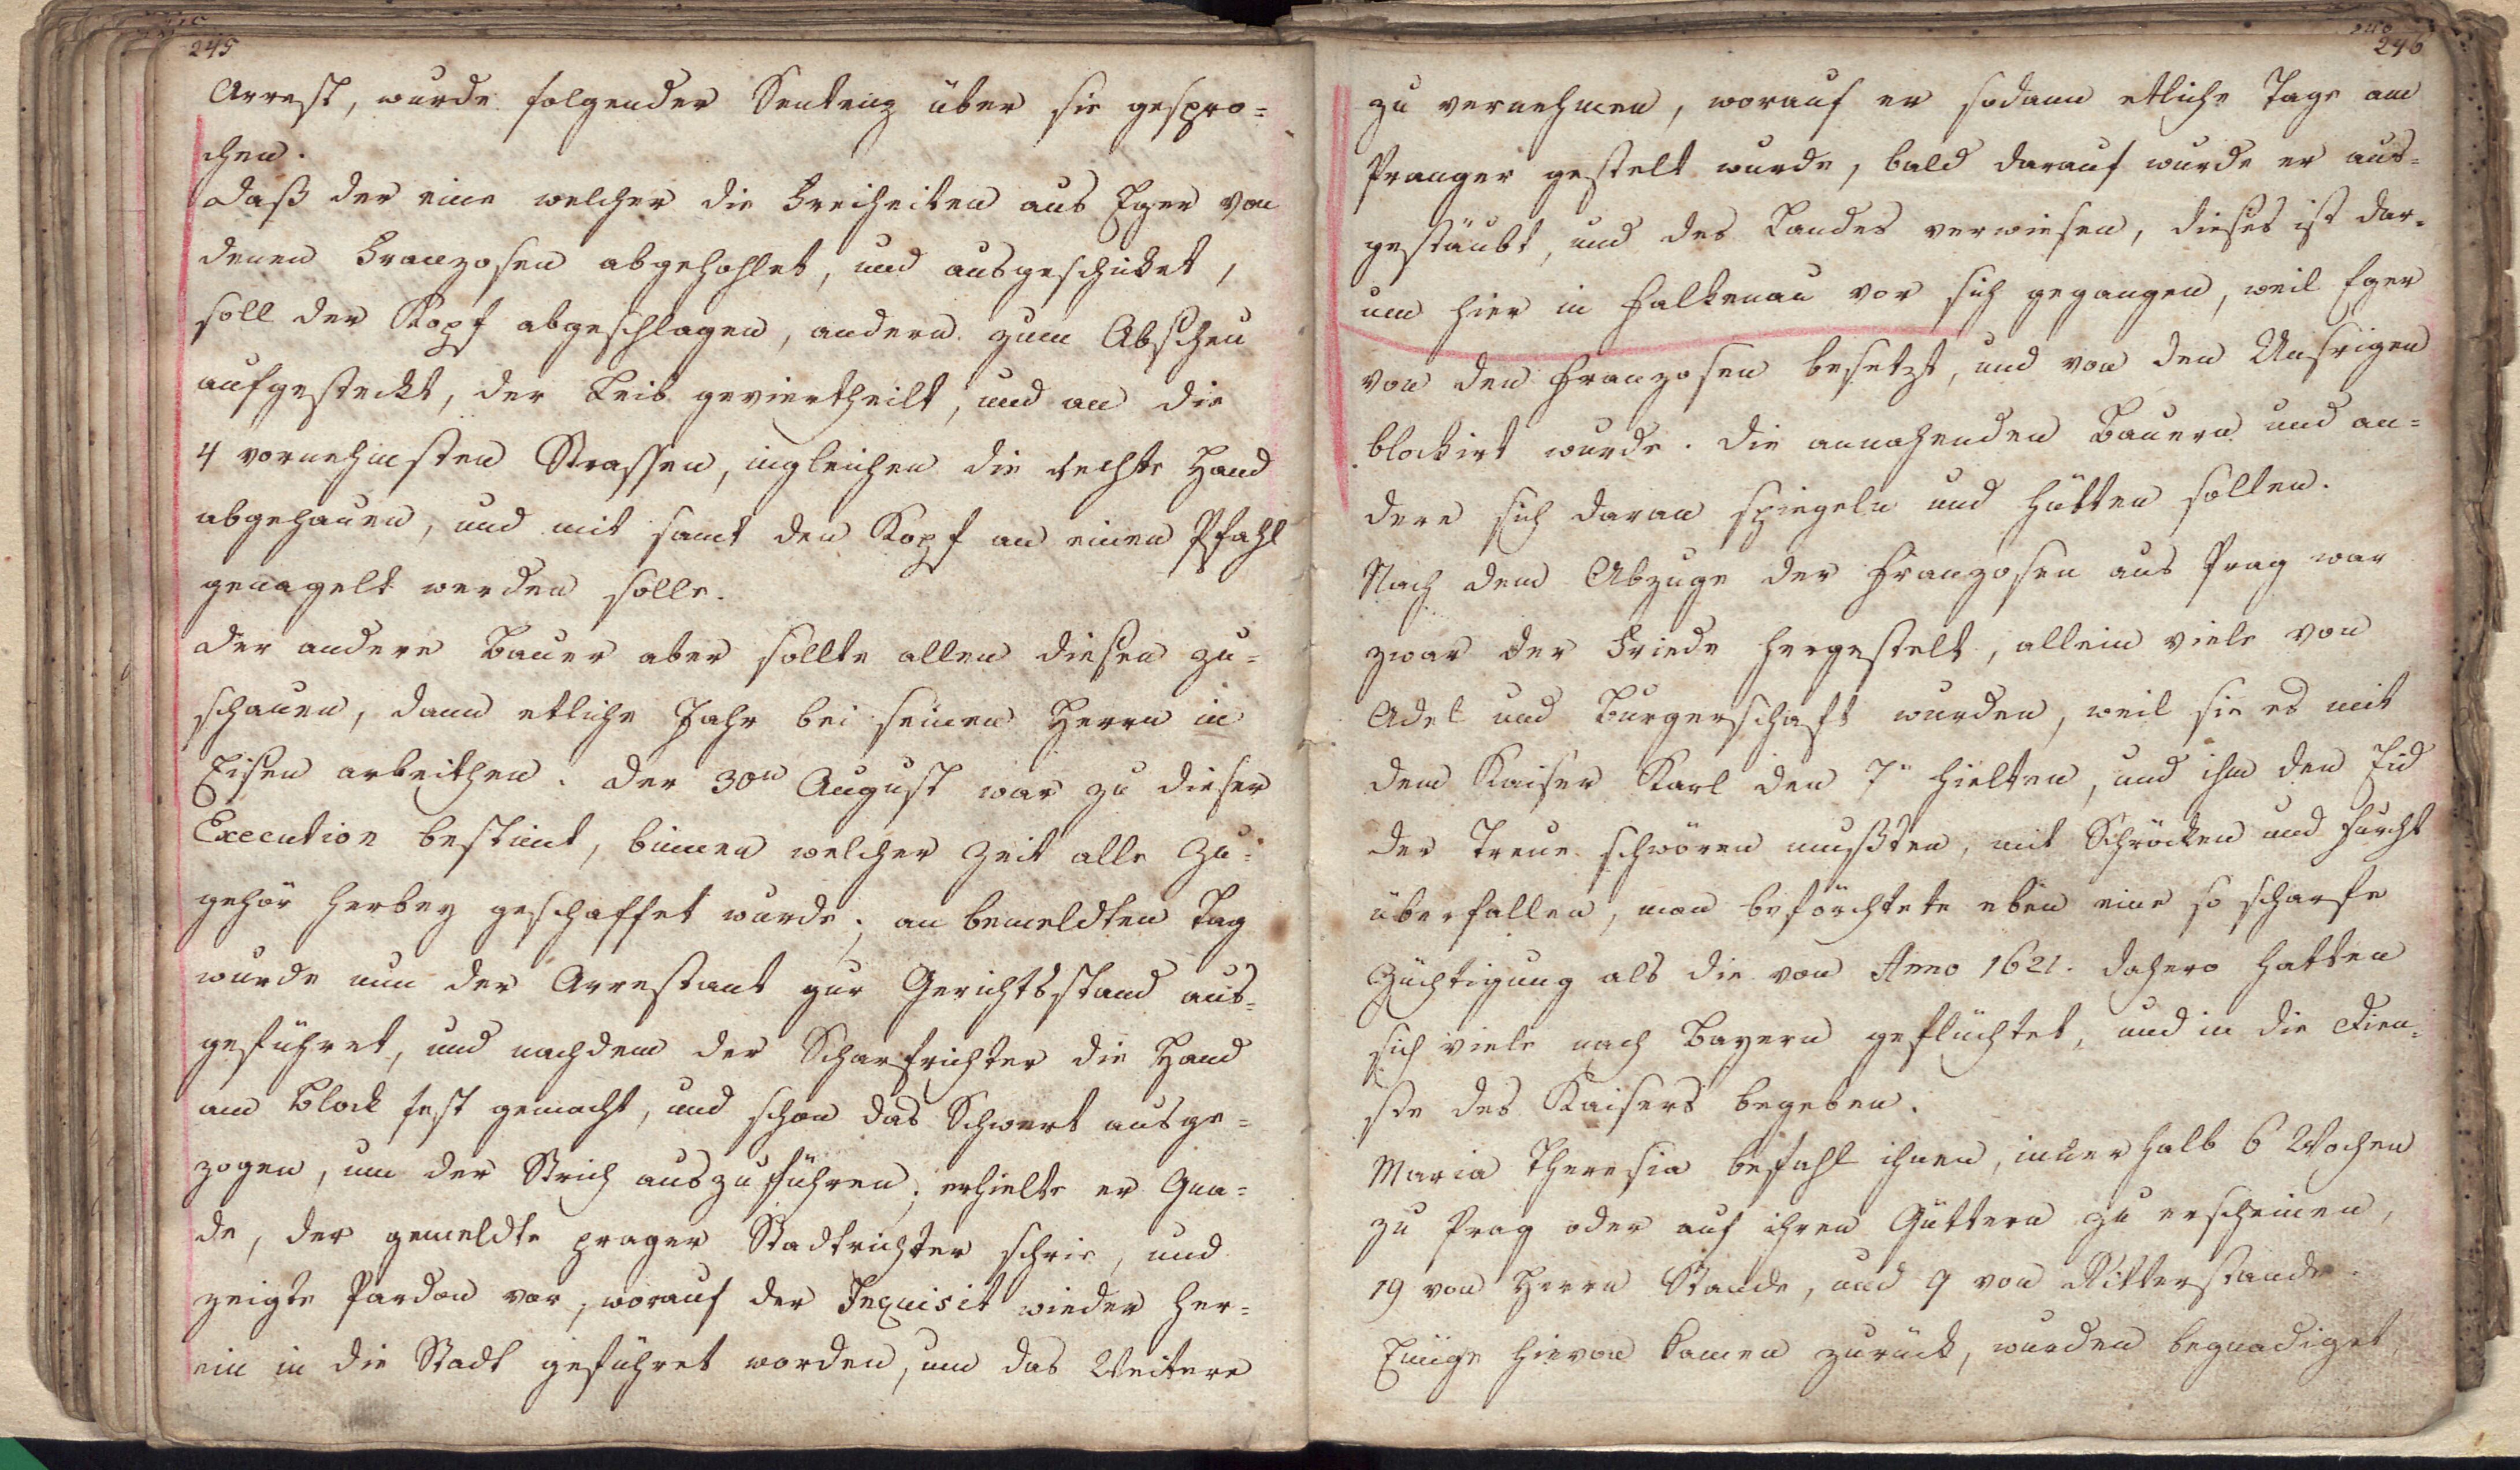 245
Arrest, wurde folgender Sentenz über sie gespro=
chen.
daß der eine welcher die Freiheiten aus Eger von
denen Franzosen abgehohlet, und ausgeschicket,
soll der Kopf abgeschlagen, andern zum Abscheu
aufgesteckt, der Leib geviertheilt, und an die
4 vornehmsten Strassen, ingleichen die rechte Hand
abgehauen, und mit samt den Kopf an einen Pfahl
genagelt werden solle.
der andere Bauer aber sollte allen diesen zu=
schauen, dann etliche Jahr bei seinen Herrn in
Eisen arbeithen. der 30n August war zu dieser
Execution bestimt, binnen welcher Zeit alle Zu=
gehör herbey geschaffet wurde; an bemeldten Tag
wurde nun der Arrestant zur Gerichtsstand aus=
geführet, und nachdem der Scharfrichter die Hand
am Block fest gemacht, und schon das Schwert ausge=
zogen, um der Strich auszuführen; erhielte er Gna=
de, der gemeldte prager Stadtrichter schrie, und
zeigte Pardon vor, worauf der Inquisit wieder her=
ein in die Stadt geführet worden, um das Weitere
246
zu vernehmen, worauf er sodann etliche Tage am
Pranger gestelt wurde, bald darauf wurde er aus=
gestäubt, und des Landes verwiesen, dieses ist dar=
um hier in Falkenau vor sich gegangen, weil Eger
von den Franzosen besetzt, und von den Unsrigen
blockirt wurde. die annahenden Bauern und an=
dere sich daran spiegeln und hütten sollen.
Nach dem Abzuge der Franzosen aus Prag war
zwar der Friede hergestelt, allein viele von
Adel und Burgerschaft wurden, weil sie es mit
dem Kaiser Karl den 7n hielten, und ihm den Eid
der Treue schwören mußten, mit Schröcken und Furcht
überfallen, man beförchtete eben eine so scharfe
Züchtigung als die von Anno 1621. dahero hatten
sich viele nach Bayern geflüchtet, und in die Dien=
ste des Kaisers begeben.
Maria Theresia befahl ihnen, innerhalb 6 Wochen
zu Prag oder auf ihren Güttern zu erscheinen,
19 von Herrn Stande, und 9 von Ritterstande.
Einige hievon kamen zurück, wurden begnadiget